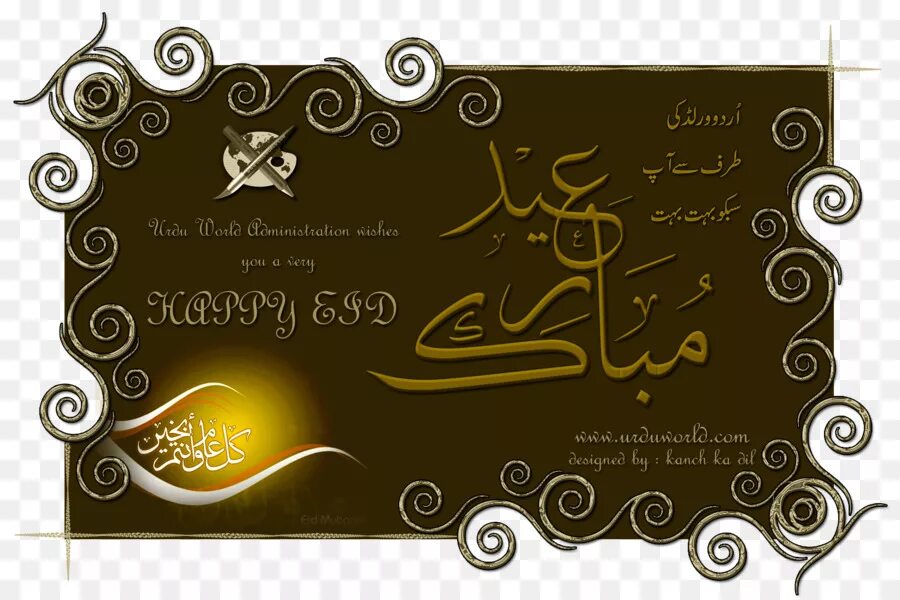 اُردو ورلڈ کی
طرف سے آپ
سبکو بہت بہت
عید
مُبارک
Urdu World Administration wishes
you a very
HAPPY EID
كل عام وأنتم بخير
www.urduworld.com
designed by : kanch ka dil